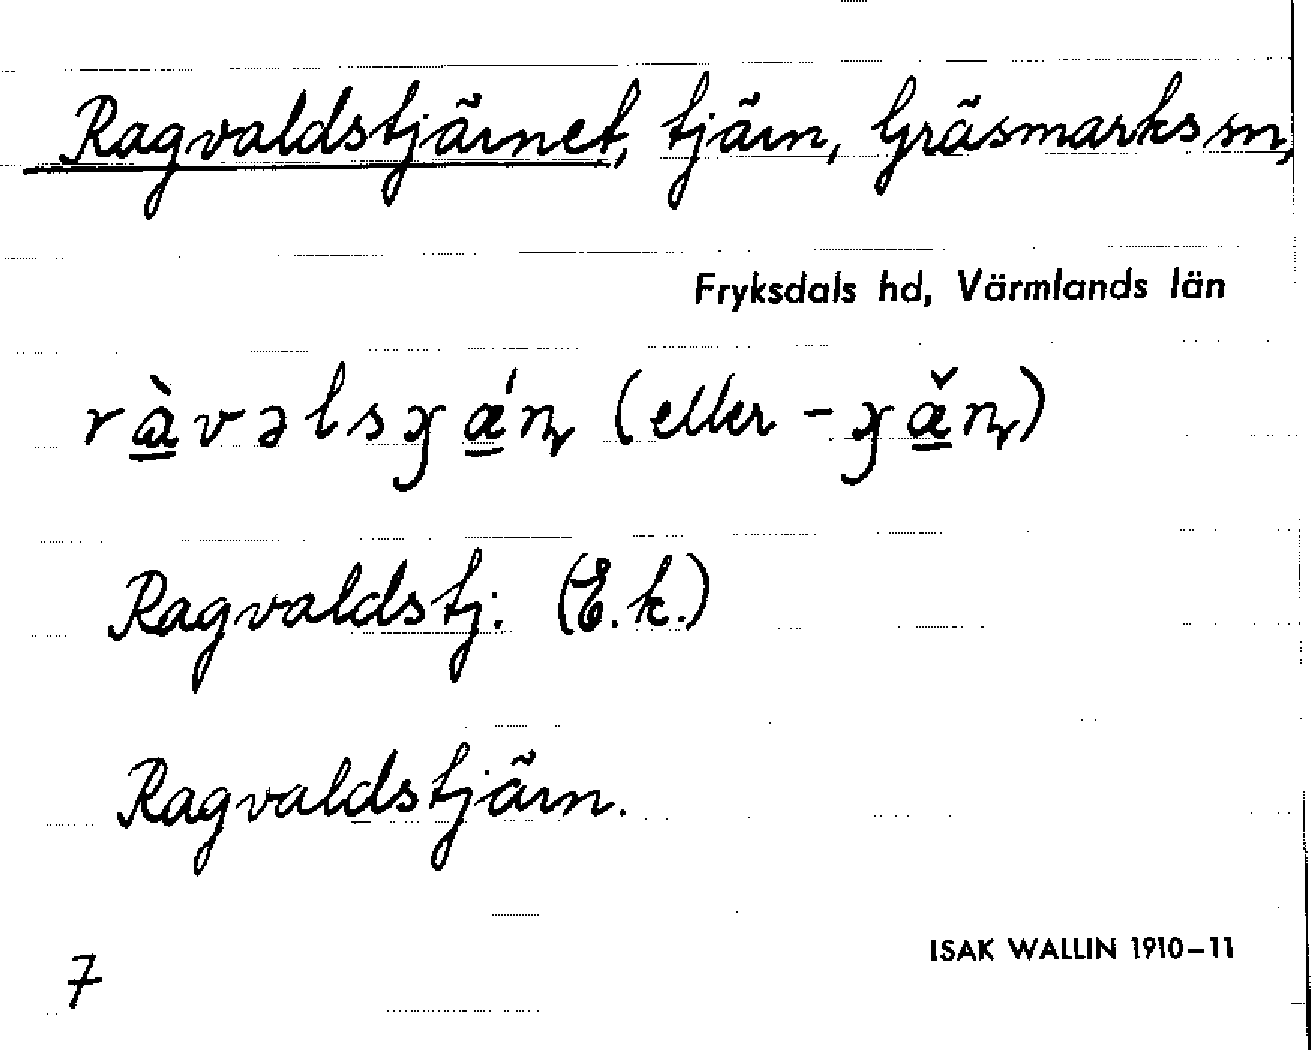 Ragvaldstjärnet, tjärn, Gräsmarks sn,
Fryksdals hd, Värmlands län
ràvəlsꞔǽn̨ (eller -ꞔæ̌n̨)
Ragvaldstj. (E.k.)
Ragvaldstjärn.
7
ISAK WALLIN 1910–11